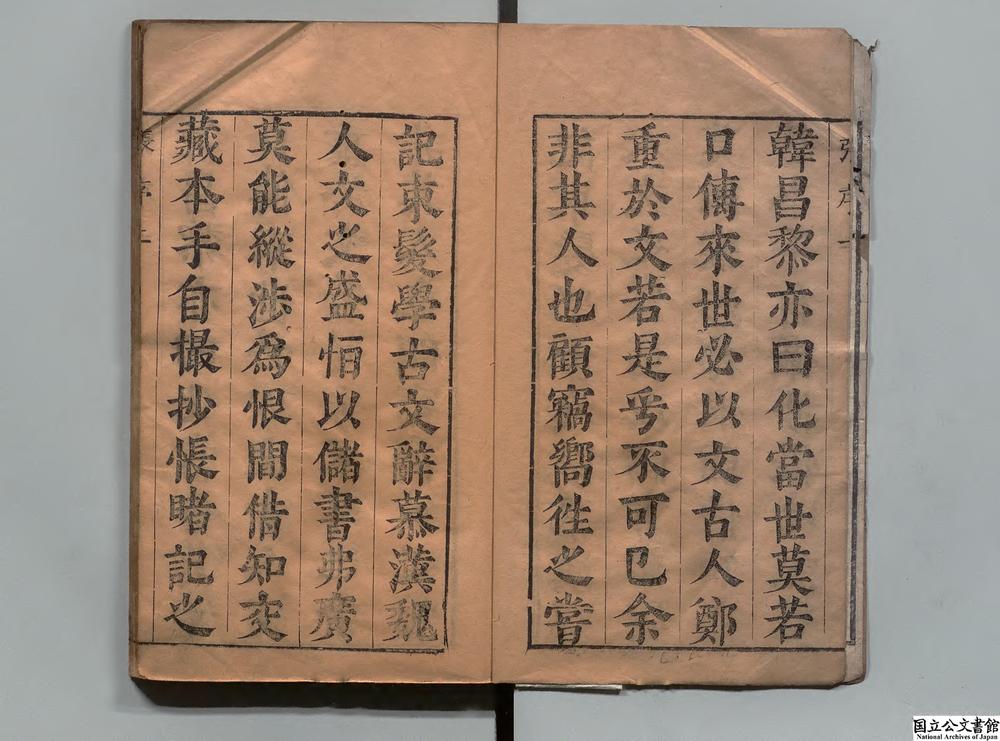 韓昌黎亦曰化當世莫若
口傳來世必以文古人鄭
重於文若是乎不可已余
非其人也顧竊嚮徃之嘗
記束髮學古文辭慕漢魏
人文之盛恒以儲書弗廣
莫能縱涉爲恨間借知交
藏本手自撮抄悵睹記之
国立公文書館
National Archives of Japan